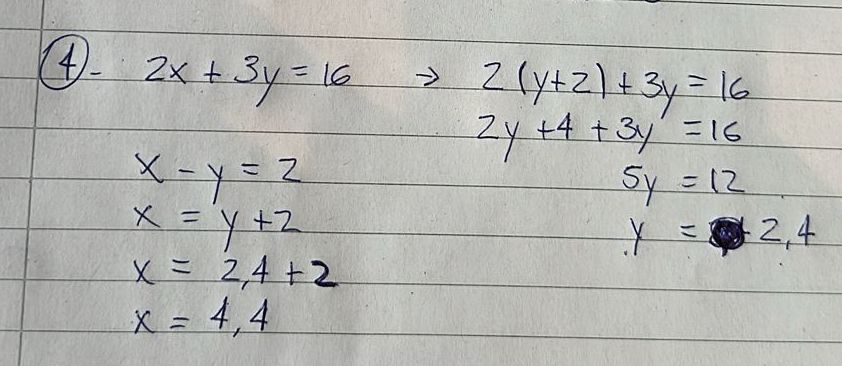 ④- 2x + 3y = 16 → 2(y+2)+3y=16
2y +4 +3y =16
x - y = 2
5y =12
x = y+2
y = 2,4
x = 2,4 +2
x = 4,4